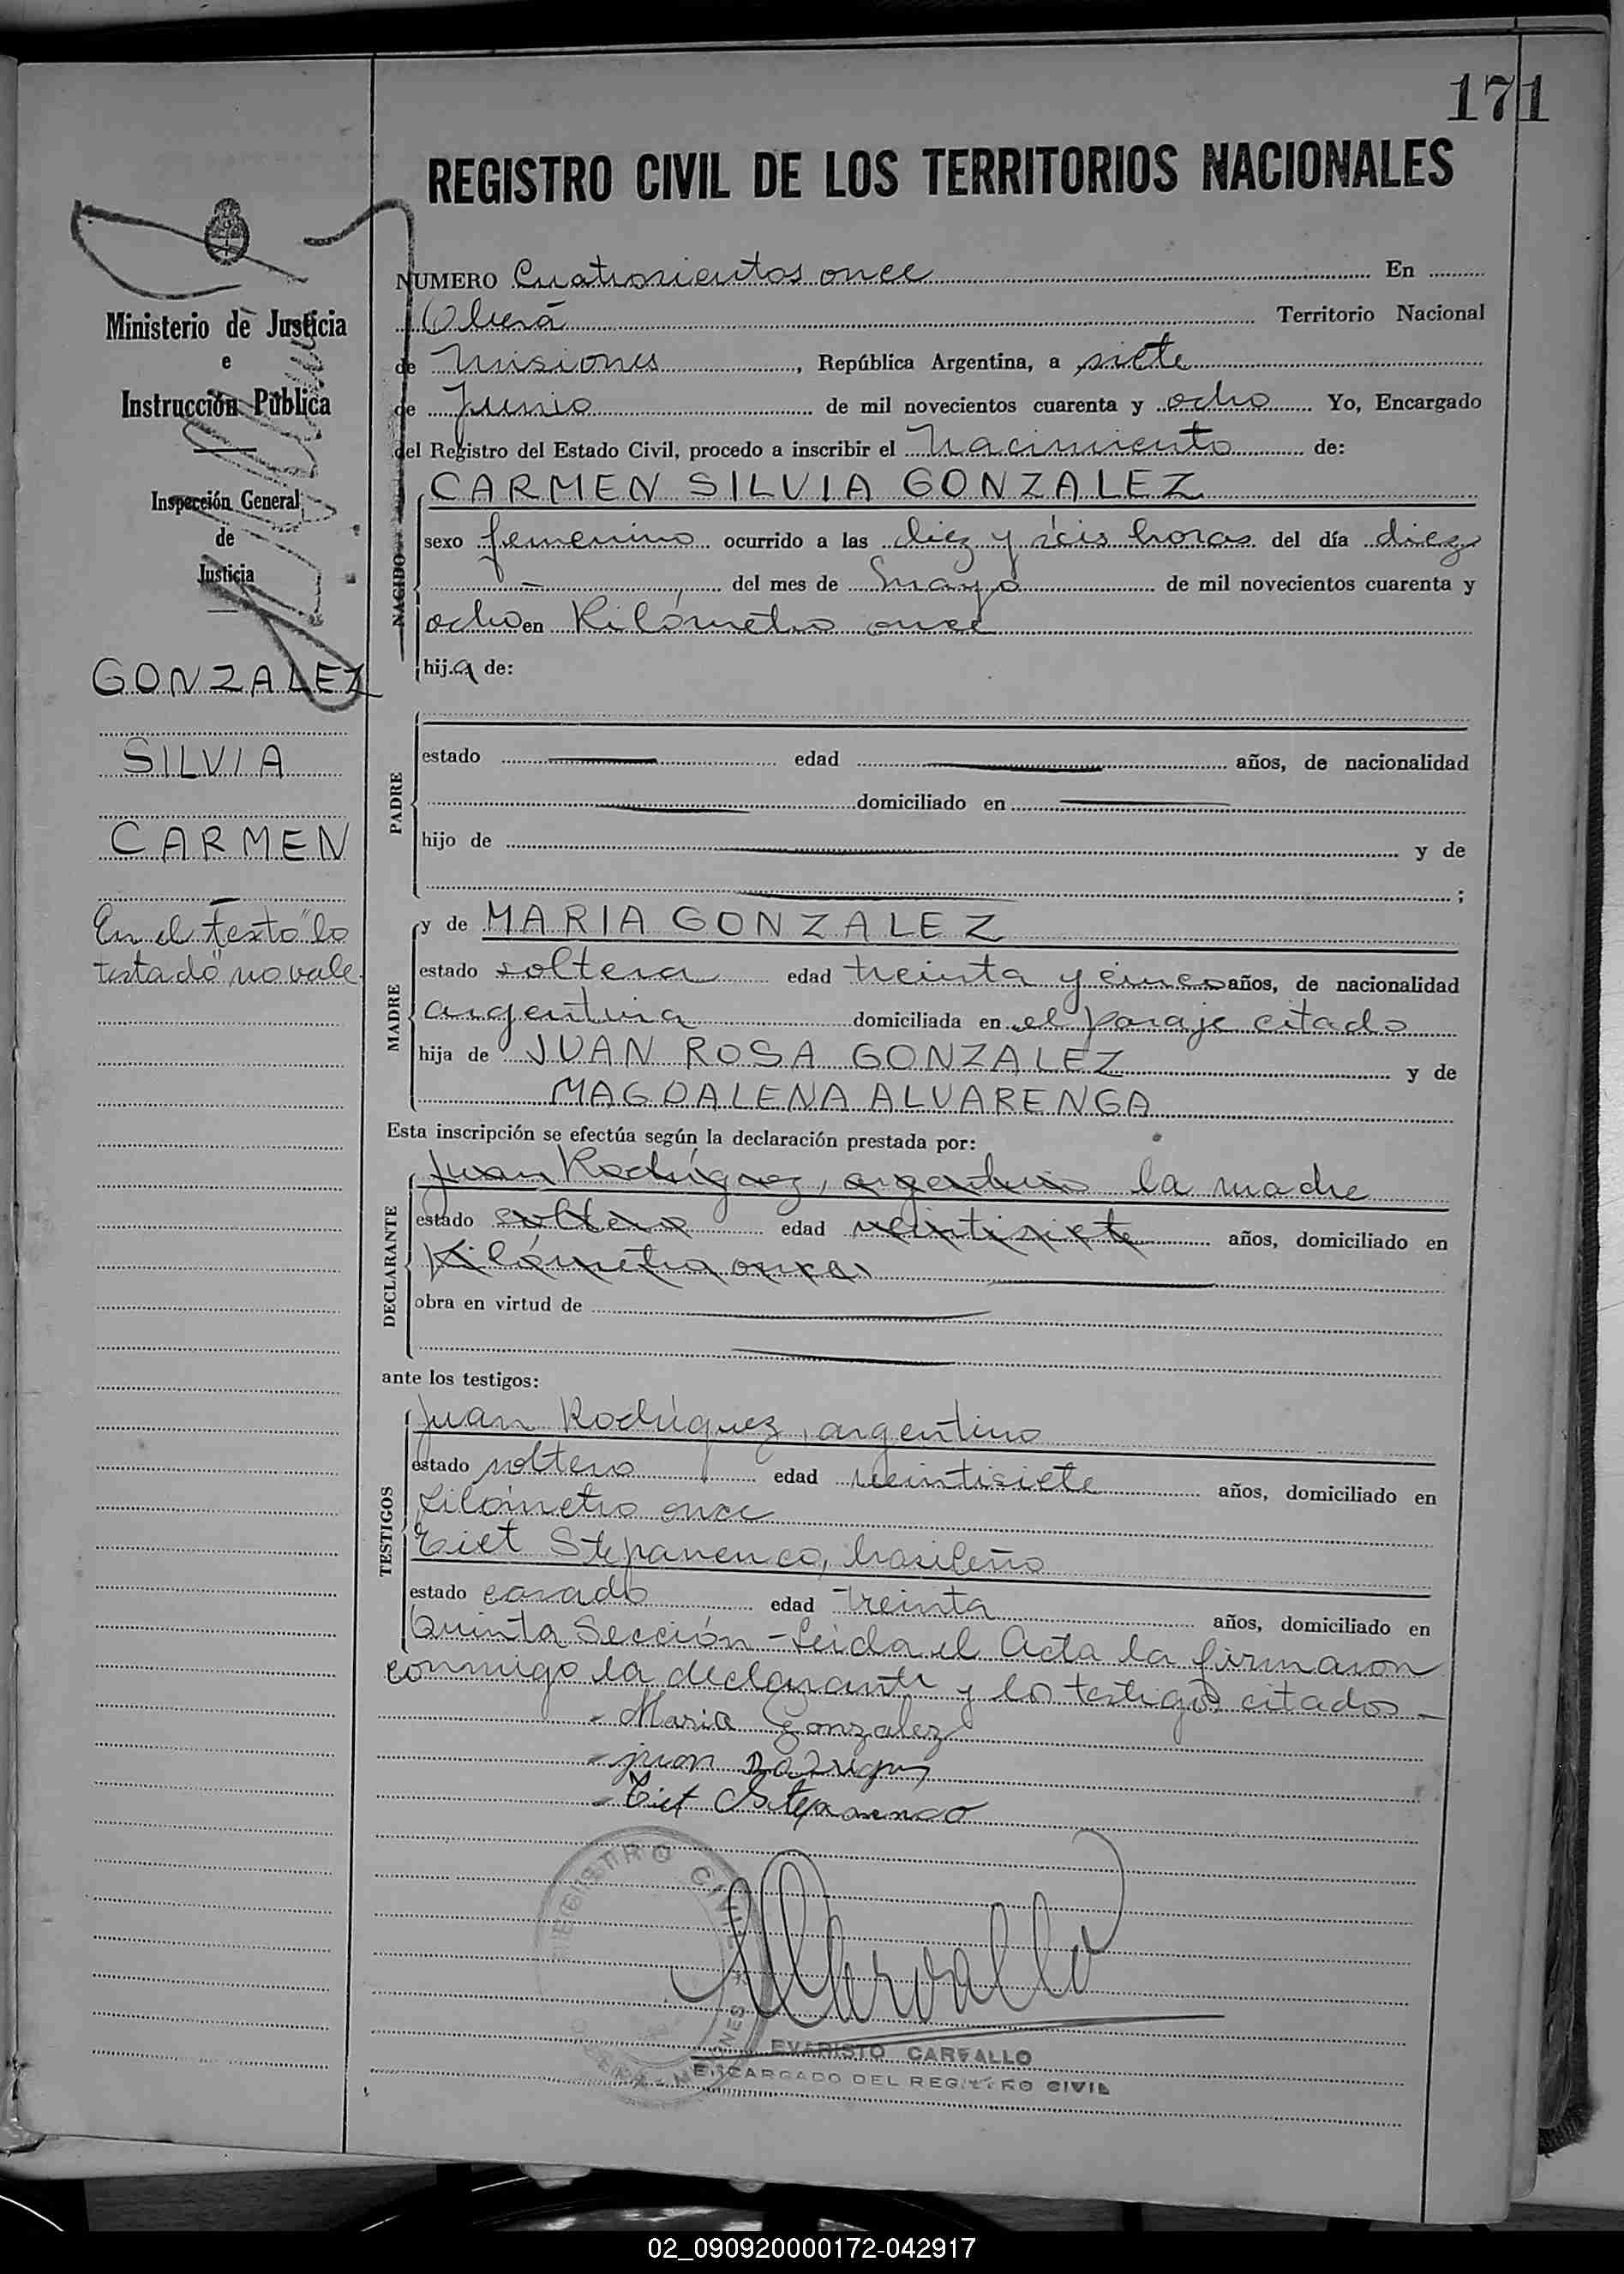 171
REGISTRO CIVIL DE LOS TERRITORIOS NACIONALES
Ministerio de Justicia
e
Instrucción Pública
Inspección General
de
Justicia
GONZALEZ
SILVIA
CARMEN
En el texto "lo
testado" no vale.
NUMERO Cuatrocientos once En
Oberá Territorio Nacional
de Misiones, República Argentina, a siete
de Junio de mil novecientos cuarenta y ocho Yo, Encargado
del Registro del Estado Civil, procedo a inscribir el Nacimiento de:
NACIDO
CARMEN SILVIA GONZALEZ
sexo femenino ocurrido a las diez y séis horas del día diez
del mes de Mayo de mil novecientos cuarenta y
ocho en Kilómetro once
hija de:
PADRE
estado edad años, de nacionalidad
domiciliado en
hijo de y de
;
MADRE
y de MARIA GONZALEZ
estado soltera edad treinta y cinco años, de nacionalidad
argentina domiciliada en el paraje citado
hija de JUAN ROSA GONZALEZ y de
MAGDALENA ALVARENGA
Esta inscripción se efectúa según la declaración prestada por:
DECLARANTE
Juan Rodríguez, argentino la madre
estado soltero edad veintisiete años, domiciliado en
Kilómetro once
obra en virtud de
ante los testigos:
TESTIGOS
Juan Rodríguez, argentino
estado soltero edad veintisiete años, domiciliado en
Kilómetro once
Tiet Stepanenco, brasileño
estado casado edad treinta años, domiciliado en
Quinta Sección - Leida el Acta la firmaron
conmigo la declarante y los testigos citados -
- Maria Gonzalez
- Tiet Stepanenco
REGISTRO CIVIL
MISIONES
EVARISTO CARVALLO
ENCARGADO DEL REGISTRO CIVIL
02_090920000172-042917